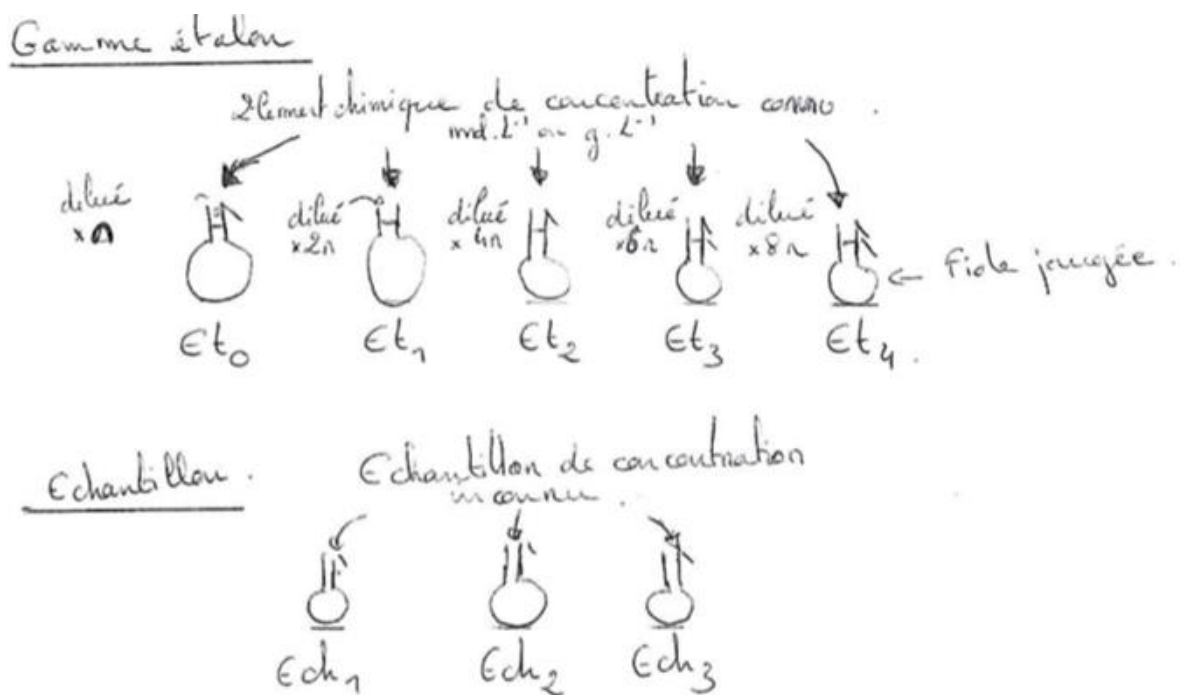 Gamme étalon
Element chimique de concentration connu.
mol.L⁻¹ ou g.L⁻¹
dilué dilué dilué dilué dilué
×n ×2n ×4n ×6n ×8n
← Fiole jaugée.
Et₀ Et₁ Et₂ Et₃ Et₄.
Echantillon. Echantillon de concentration
inconnu.
Ech₁ Ech₂ Ech₃